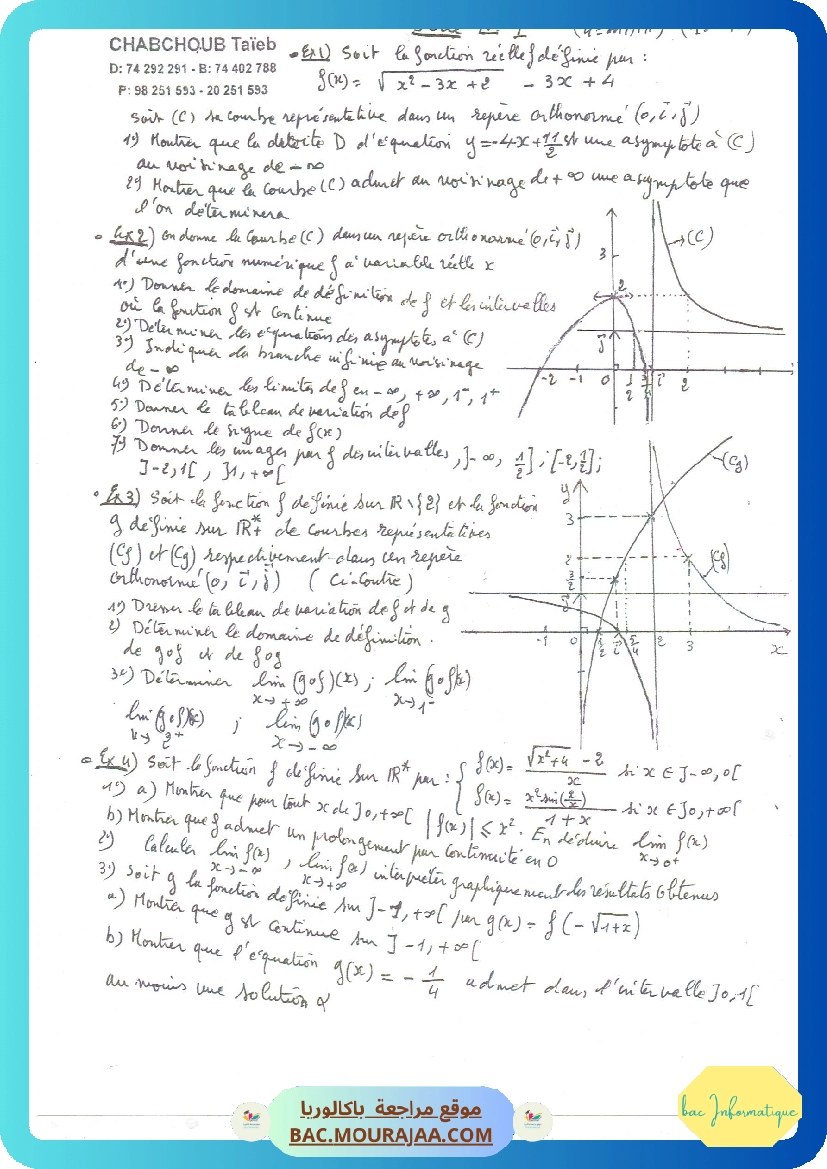 CHABCHOUB Taïeb
D: 74 292 291 - B: 74 402 788
P: 98 251 593 - 20 251 593
Ex1) Soit la fonction réelle f définie par :
f(x) = √(x² - 3x + 2) - 3x + 4
Soit (C) sa courbe représentative dans un repère orthonormé (o, i, j)
1°) Montrer que la droite D d'équation y = -4x + 11/2 est une asymptote à (C)
au voisinage de -∞
2°) Montrer que la courbe (C) admet au voisinage de +∞ une asymptote que
l'on déterminera
Ex2) on donne la courbe (C) dans un repère orthonormé (o, i, j)
d'une fonction numérique f à variable réelle x
1°) Donner le domaine de définition de f et les intervalles
où la fonction f est continue
2°) Déterminer les équations des asymptotes à (C)
3°) Indiquer la branche infinie au voisinage
de -∞
4°) Déterminer les limites de f en -∞, +∞, 1⁻, 1⁺
5°) Donner le tableau de variation de f
6°) Donner le signe de f(x)
7°) Donner les images par f des intervalles, ]-∞, 1/2] ; [-2, 1/2] ;
]-2, 1[ , ]1, +∞[
(C)
3
2
j
-2 -1 0 1/2 3/4 i 2
Ex3) Soit la fonction f définie sur IR\{2} et la fonction
g définie sur IR*+ de courbes représentatives
(Cf) et (Cg) respectivement dans un repère
orthonormé (o, i, j) (Ci-Contre)
1°) Dresser le tableau de variation de f et de g
2) Déterminer le domaine de définition
de gof et de fog
3°) Déterminer lim (gof)(x) ; lim (gof)(x)
x→+∞ x→1⁻
lim (gof)(x) ; lim (gof)(x)
x→2⁺ x→-∞
y
(Cg)
(Cf)
3
2
3/2
j
-1 0 1/2 i 5/4 2 3 x
Ex4) Soit la fonction f définie sur IR* par : { f(x) = (√(x²+4) - 2)/x si x ∈ ]-∞, 0[
f(x) = (x² sin(2/x))/(1 + x) si x ∈ ]0, +∞[
1°) a) Montrer que pour tout x de ]0, +∞[ |f(x)| ≤ x². En déduire lim f(x)
x→0⁺
b) Montrer que f admet un prolongement par continuité en 0
2°) Calculer lim f(x) , lim f(x) interpréter graphiquement les résultats obtenus
x→-∞ x→+∞
3°) Soit g la fonction définie sur ]-1, +∞[ par g(x) = f(-√(1+x))
a) Montrer que g est continue sur ]-1, +∞[
b) Montrer que l'équation g(x) = -1/4 admet dans l'intervalle ]0, 1[
au moins une solution α
موقع مراجعة باكالوريا
BAC.MOURAJAA.COM
bac Informatique